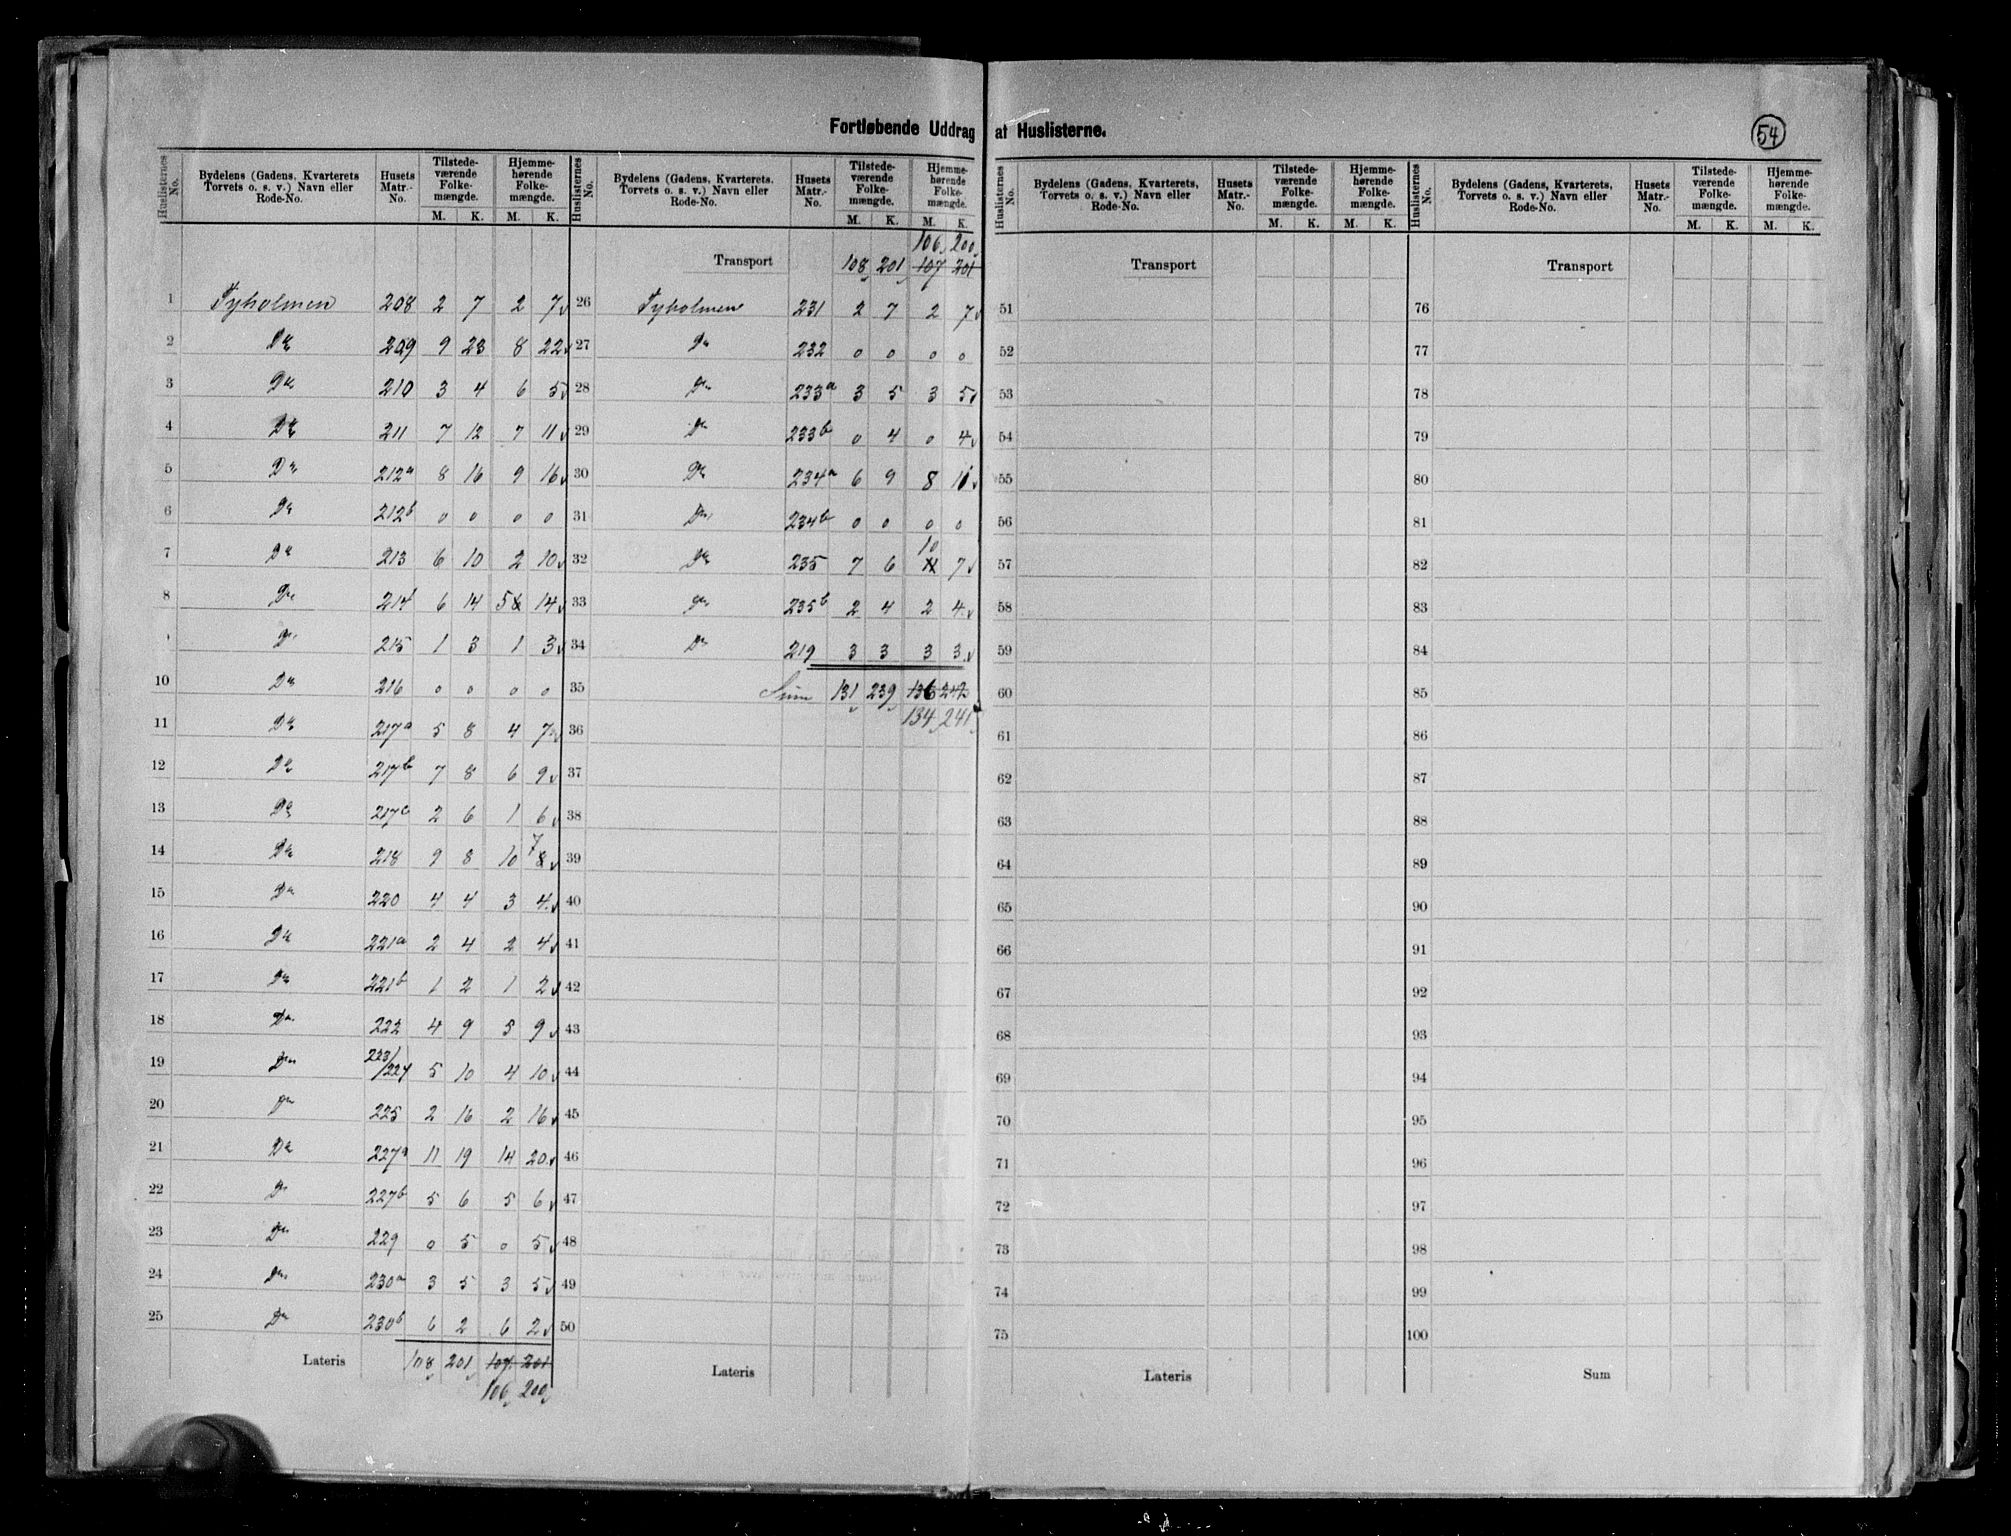 Fortløbende Uddrag af Huslisterne.
54
Huslisternes No. Bydelens (Gadens, Kvarterets Torvets o. s. v.) Navn eller Rode-No. Husets Matr.-No. Tilstedeværende Folkemængde. M. K. Hjemmehørende Folkemængde. M. K.
1 Tyholmen 208 2 7 2 7
2 Do 209 9 23 8 22
3 Do 210 3 4 6 5
4 Do 211 7 12 7 11
5 Do 212a 8 16 9 16
6 Do 212b 0 0 0 0
7 Do 213 6 10 2 10
8 Do 214 6 14 5 14
Do 215 1 3 1 3
10 Do 216 0 0 0 0
11 Do 217a 5 8 4 7
12 Do 217b 7 8 6 9
13 Do 217c 2 6 1 6
14 Do 218 9 8 10 7 8
15 Do 220 4 4 3 4
16 Do 221a 2 4 2 4
17 Do 221b 1 2 1 2
18 Do 222 4 9 5 9
19 Do 223/224 5 10 4 10
20 Do 225 2 16 2 16
21 Do 227a 11 19 14 20
22 Do 227b 5 6 5 6
23 Do 229 0 5 0 5
24 Do 230a 3 5 3 5
25 Do 230b 6 2 6 2
Lateris 108 201 107 201
106 200
Huslisternes No. Bydelens (Gadens, Kvarterets. Torvets o. s. v.) Navn eller Rode-No. Husets Matr.-No. Tilstedeværende Folkemængde. M. K. Hjemmehørende Folkemængde. M. K.
106 200
Transport 108 201 107 201
26 Tyholmen 231 2 7 2 7
27 Do 232 0 0 0 0
28 Do 233a 3 5 3 5
29 Do 233b 0 4 0 4
30 Do 234a 6 9 8 11
31 Do 234b 0 0 0 0
32 Do 235 7 6 10 7
33 Do 235b 2 4 2 4
34 Do 219 3 3 3 3
35 Sum 131 239 136 242
134 241
36
37
38
39
40
41
42
43
44
45
46
47
48
49
50
Lateris
Huslisternes No. Bydelens (Gadens, Kvarterets, Torvets o. s. v.) Navn eller Rode-No. Husets Matr.-No. Tilstedeværende Folkemængde. M. K. Hjemmehørende Folkemængde. M. K.
Transport
51
52
53
54
55
56
57
58
59
60
61
62
63
64
65
66
67
68
69
70
71
72
73
74
75
Lateris
Huslisternes No. Bydelens (Gadens, Kvarterets, Torvets o. s. v.) Navn eller Rode-No. Husets Matr.-No. Tilstedeværende Folkemængde. M. K. Hjemmehørende Folkemængde. M. K.
Transport
76
77
78
79
80
81
82
83
84
85
86
87
88
89
90
91
92
93
94
95
96
97
98
99
100
Sum